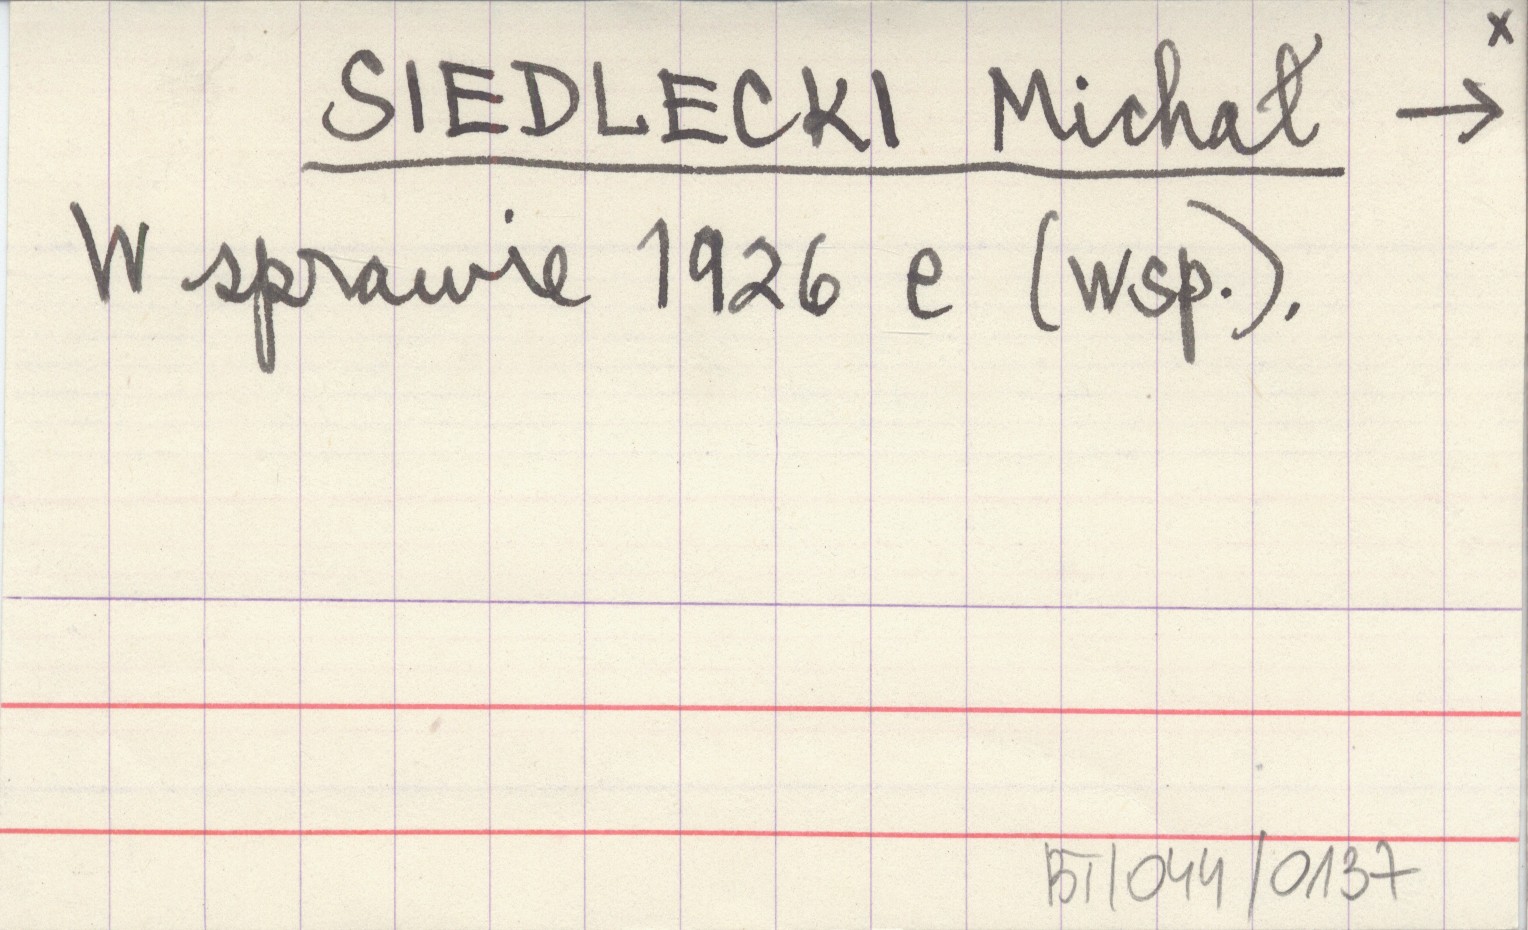 x
SIEDLECKI Michał →
W sprawie 1926 e (wsp.).
BT/044/0137